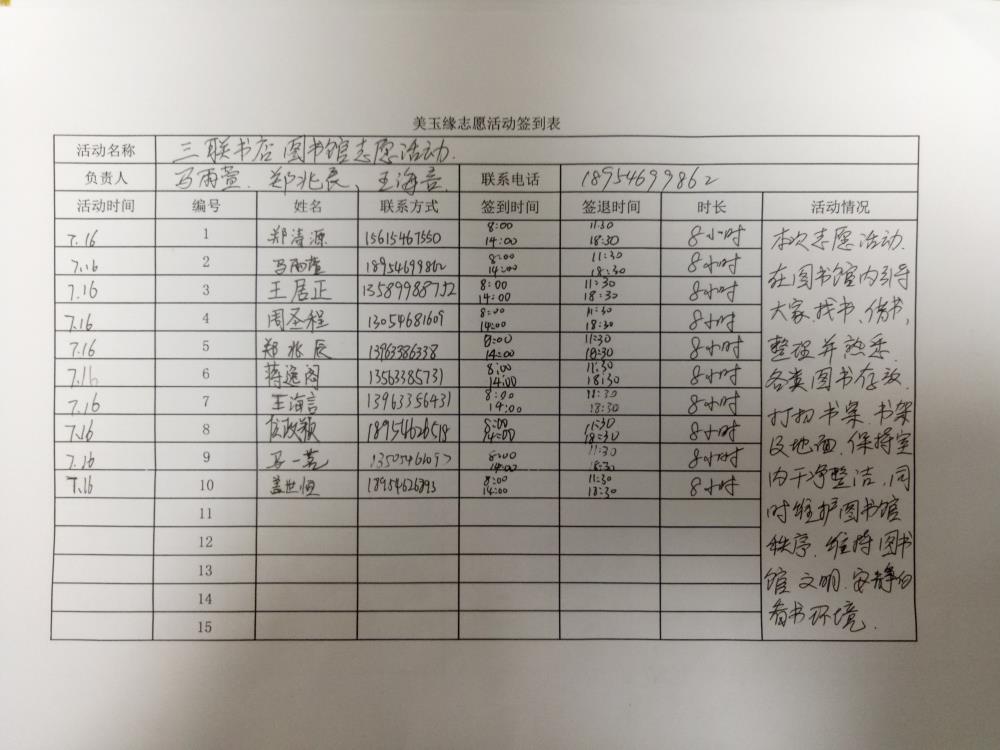 美玉缘志愿活动签到表
活动名称 三联书店图书馆志愿活动.
负责人 马雨萱. 郑兆辰、王海言. 联系电话 18954699862
活动时间 编号 姓名 联系方式 签到时间 签退时间 时长 活动情况
7.16 1 郑清源 15615467550 8:00 14:00 11:30 18:30 8小时
7.16 2 马雨萱 18954699862 8:00 14:00 11:30 18:30 8小时
7.16 3 王居正 13589988752 8:00 14:00 11:30 18:30 8小时
7.16 4 周圣程 13054681609 8:00 14:00 11:30 18:30 8小时
7.16 5 郑兆辰 13963386338 8:00 14:00 11:30 18:30 8小时
7.16 6 13563385731 8:00 14:00 11:30 18:30 8小时
7.16 7 王海言 13963356431 8:00 14:00 11:30 18:30 8小时
7.16 8 8:00 14:00 11:30 18:30 8小时
7.16 9 马一茗 8:00 14:00 11:30 18:30 8小时
7.16 10 盖世恒 8:00 14:00 11:30 18:30 8小时
11
12
13
14
15
本次志愿活动.
在图书馆内引导
大家找书、借书,
整理并熟悉
各类图书存放.
打扫书桌.书架
及地面.保持室
内干净整洁.同
时维护图书馆
秩序.维持图书
馆文明.安静的
看书环境.